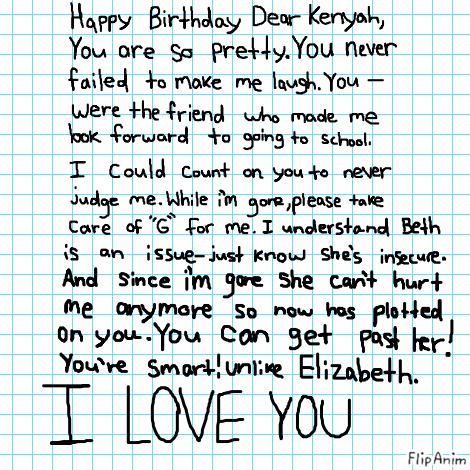 Happy Birthday Dear Kenyah,
You are so pretty. You never
failed to make me laugh. You —
were the friend who made me
look forward to going to school.
I could count on you to never
judge me. While i'm gone, please take
care of "G" for me. I understand Beth
is an issue—just know she's insecure.
And since i'm gone she can't hurt
me anymore so now has plotted
on you. You can get past her!
You're smart! unlike Elizabeth.
I LOVE YOU
FlipAnim